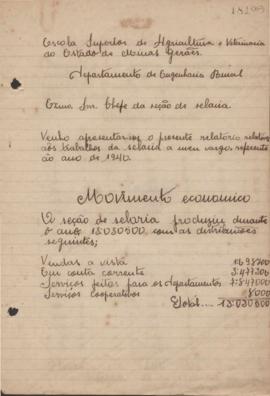 Escola Superior de Agricultura e Veterinaria
do Estado de Minas Geraes.
Departamento de Engenharia Rural
Exmo. Snr. Chefe da seção de selaria.
Venho apresentar-vos o presente relatório relativo
aos trabalhos da selaria a meu cargo, referente
ao ano de 1940.
Movimento economico
A seção de selaria produziu durante
o ano 13:030$600, com as distribuições
seguintes;
Vendas a vistá
Em conta corrente 5:477$300
Serviços feitos para os departamentos
Serviços cooperativos 8000
Total.... 13:030$600